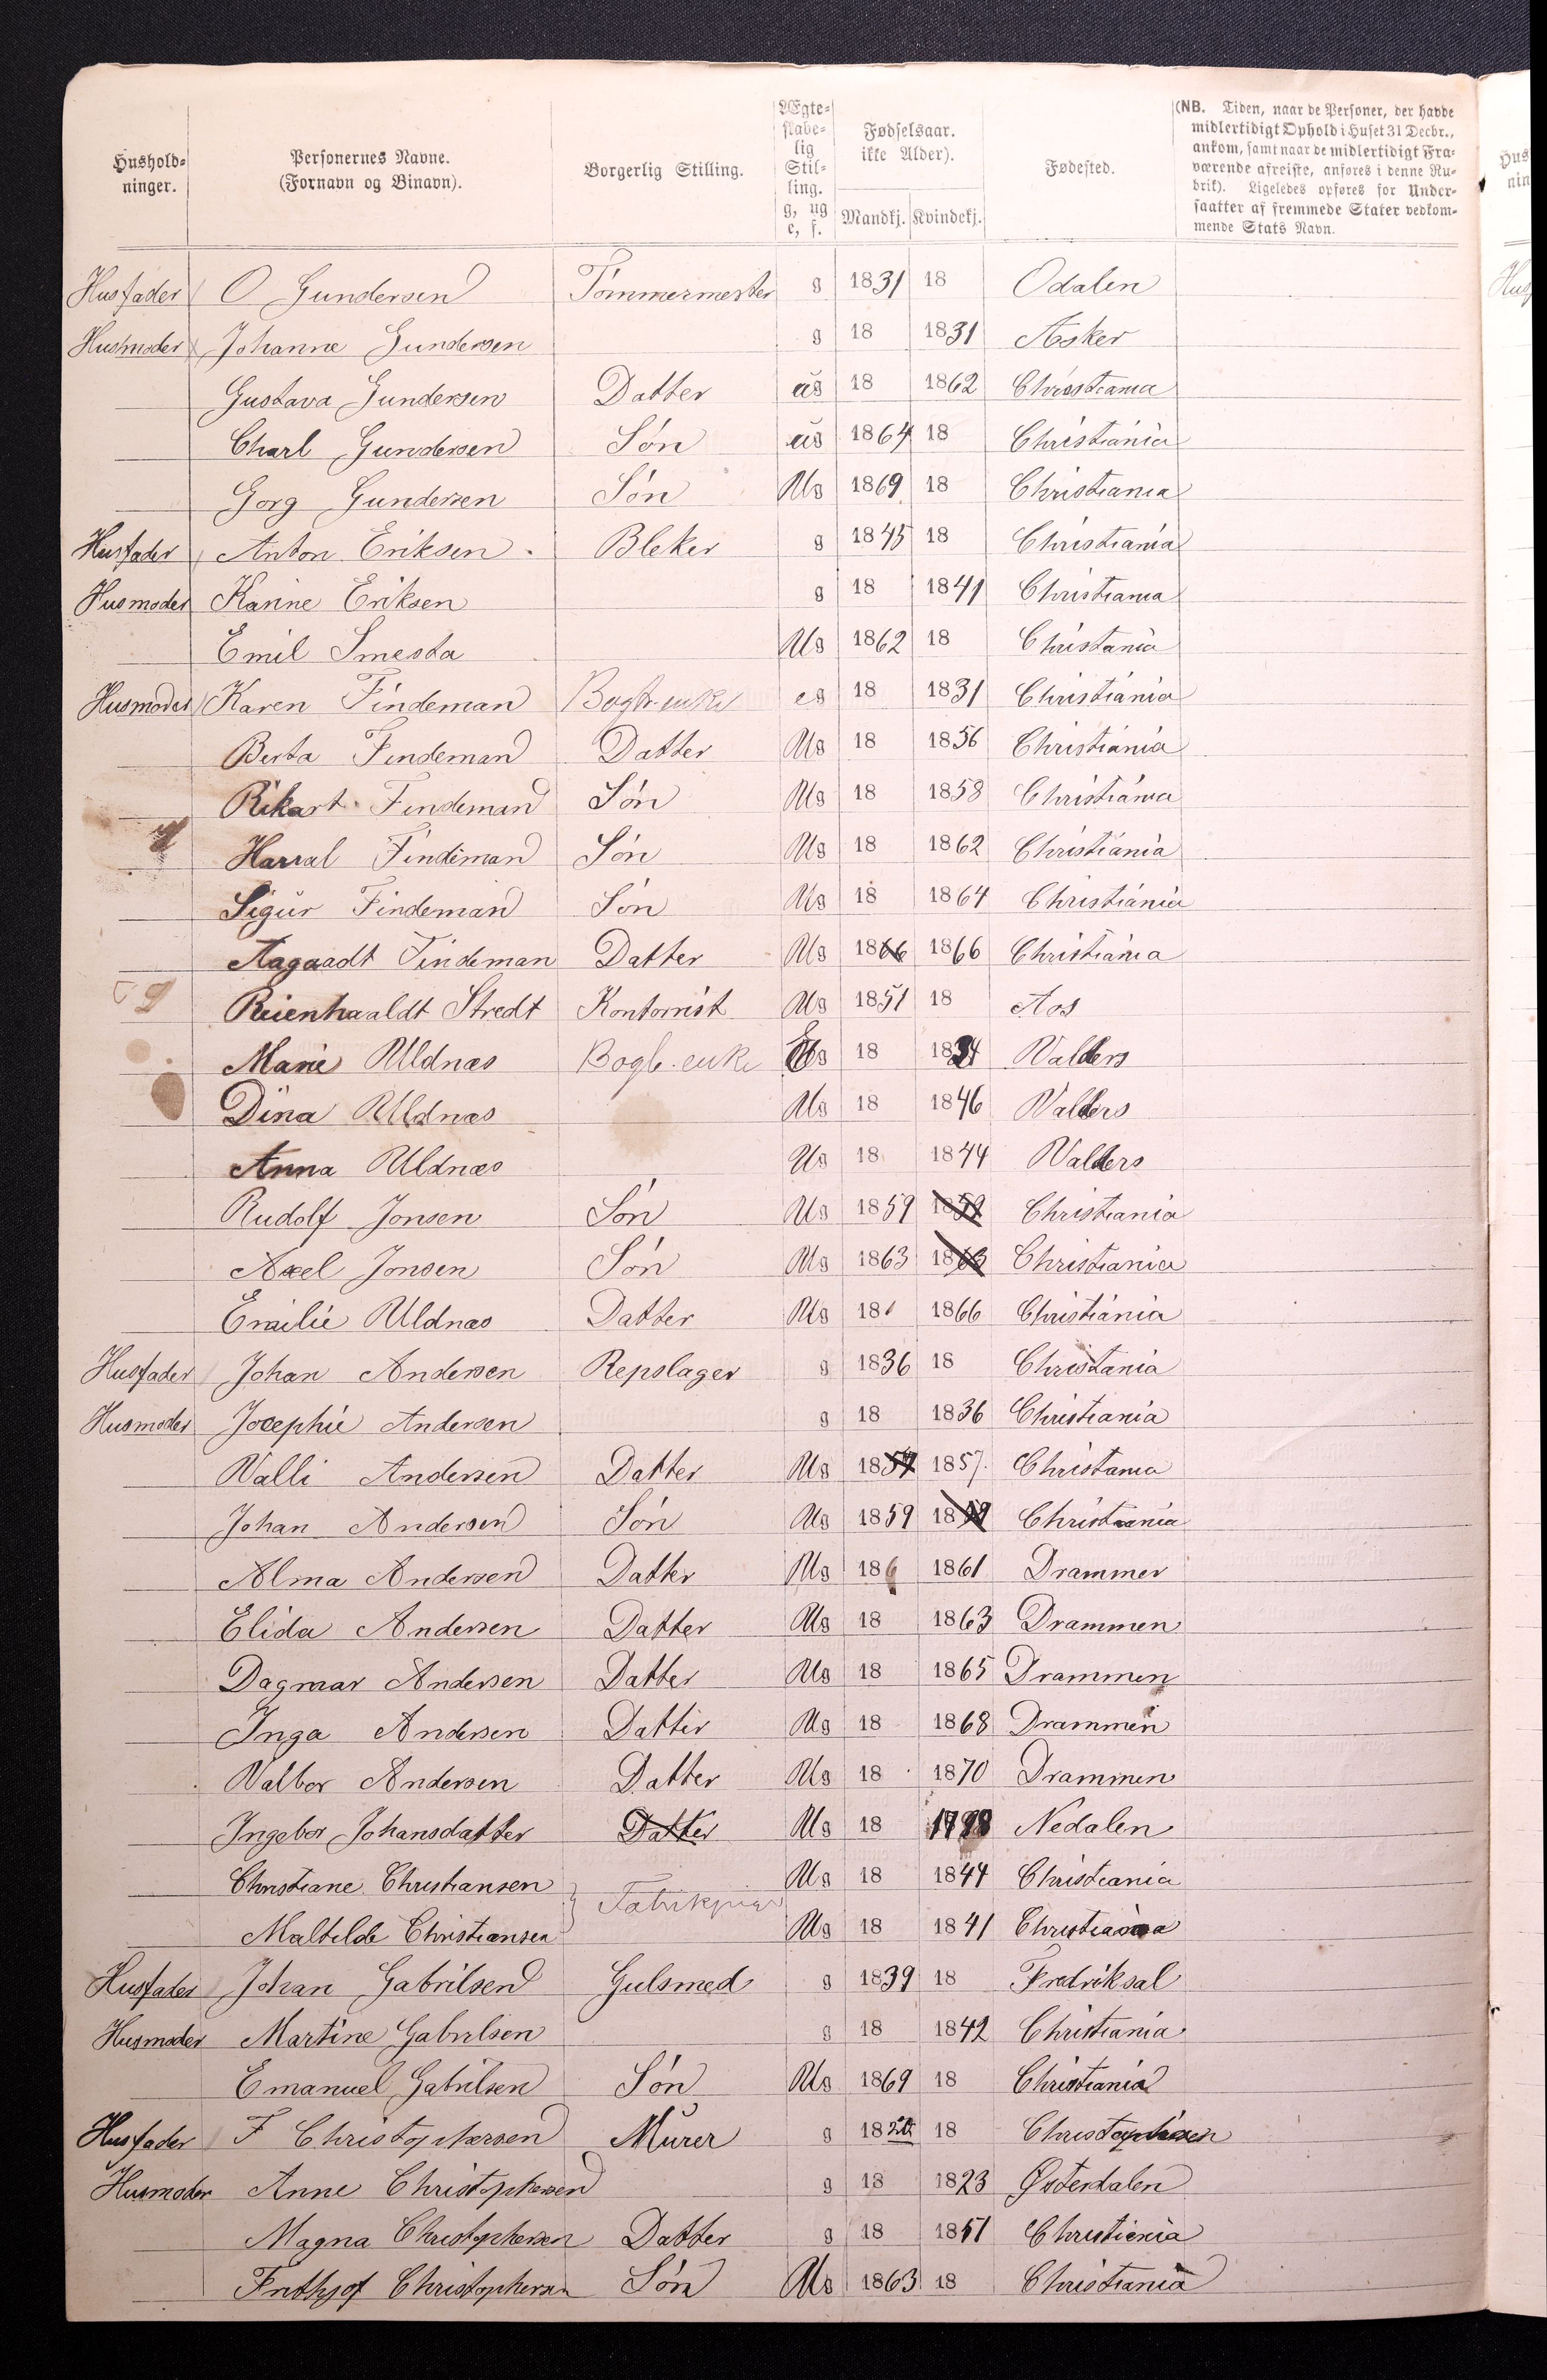 Hushold-ninger. Personernes Navne. (Fornavn og Binavn). Borgerlig Stilling. Ægte-skabe-lig Stil-ling. g, ug e, f. Fødselsaar. ikke Alder). Mandkj. Kvindekj. Fødested. (NB. Tiden, naar de Personer, der havde midlertidigt Ophold i Huset 31 Decbr., ankom, samt naar de midlertidigt Fra-værende afreiste, anføres i denne Ru-brik). Ligeledes opføres for Under-saatter af fremmede Stater vedkom-mende Stats Navn.
Husfader O Gundersen Tömmermester g 1831 18 Odalen
Husmoder Johanne Gundersen g 18 1831 Asker
Gustava Gundersen Datter ug 18 1862 Christiania
Charl Gundersen Sön ug 1864 18 Christiania
Gorg Gundersen Sön Ug 1869 18 Christiania
Husfader Anton Eriksen Bleker g 1845 18 Christiania
Husmoder Karine Eriksen g 18 1841 Christiania
Emil Smesta Ug 1862 18 Christania
Husmoder Karen Findeman Bogb. enke eg 18 1831 Christiania
Berta Findeman Datter Ug 18 1856 Christiania
Rikart Findeman Sön Ug 18 1858 Christiania
Harral Findeman Sön Ug 18 1862 Christiania
Sigur Findeman Sön Ug 18 1864 Christiania
Aagaadt Findeman Datter Ug 1866 1866 Christiania
Reienhaaldt Stredt Kontorrist Ug 1851 18 Aos
Marie Uldnæs Bogb. enke 18 Valders
Dina Uldnæs Ug 18 1846 Valders
Anna Uldnæs Ug 18 1844 Valders
Rudolf Jonsen Sön Ug 1859 1859 Christiania
Axel Jonsen Sön Ug 1863 1863 Christiania
Emilie Uldnæs Datter Ug 18 1866 Christiania
Husfader Johan Andersen Repslager g 1836 18 Christania
Husmoder Josephie Andersen g 18 1836 Christiania
Valli Andersen Datter Ug 1857 1857 Christania
Johan Andersen Sön Ug 1859 1859 Christiania
Alma Andersen Datter Ug 186 1861 Drammer
Elida Andersen Datter Ug 18 1863 Drammen
Dagmar Andersen Datter Ug 18 1865 Drammen
Inga Andersen Datter Ug 18 1868 Drammen
Valbor Andersen Datter Ug 18 1870 Drammen
Ingebor Johansdatter Datter Ug 18 1798 Nedalen
Christiane Christiansen } Fabrikpiger Ug 18 1844 Christiania
Maltilde Christiansen Ug 18 1841 Christiania
Husfader Johan Gabrilsen Gulsmed g 1839 18 Fredriksal
Husmoder Martine Gabrilsen g 18 1842 Christiania
Emanuel Gabrilsen Sön Ug 1869 18 Christiania
Husfader F Christophersen Murer g 18 18
Husmoder Anne Christophersen g 18 1823 Østerdalen
Magna Christophersen Datter g 18 1851 Christienia
Frithjof Christophersen Sön Ug 1863 18 Christiania